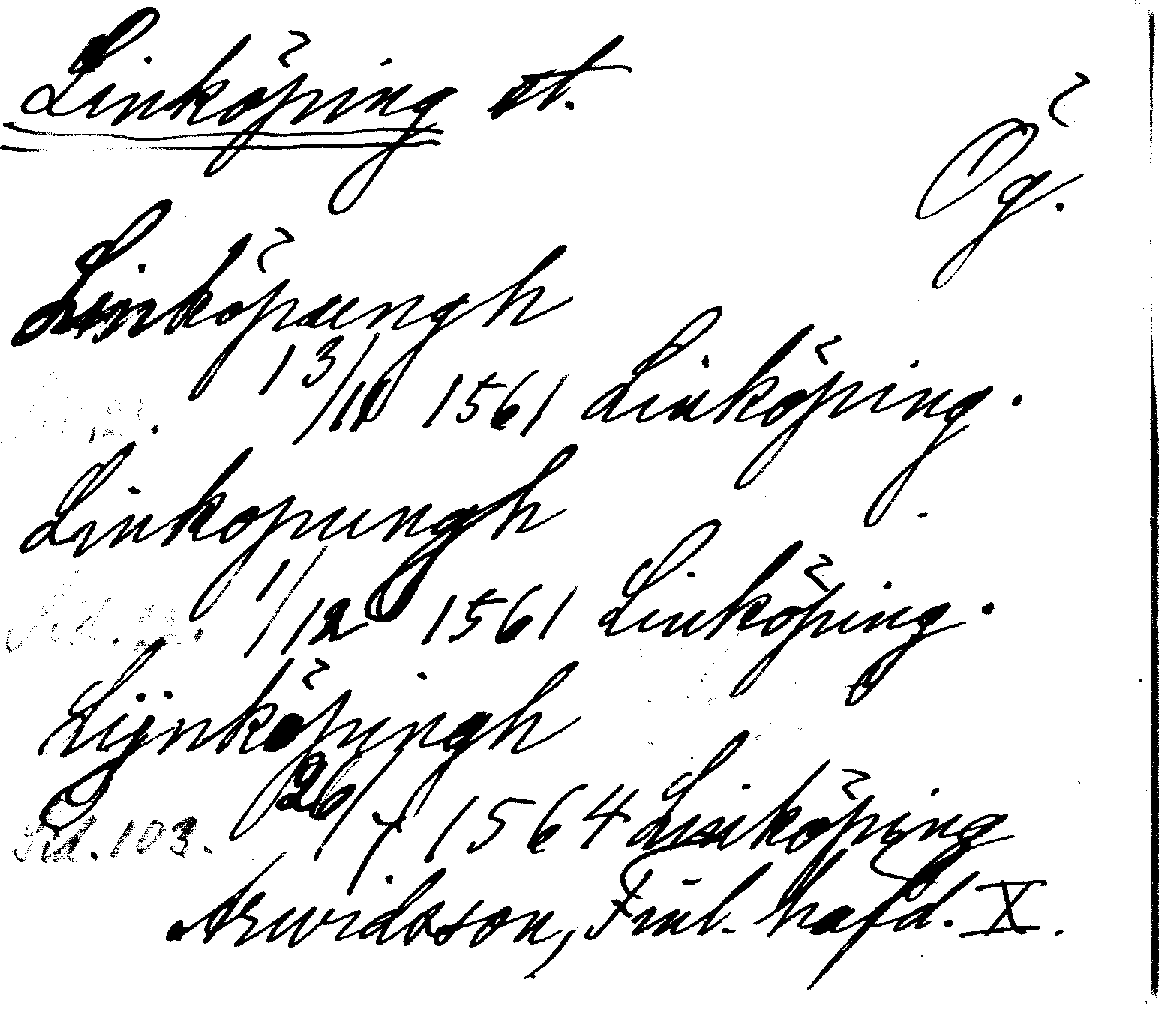 Linköping st.
Ög.
Linköpungh
13/11 1561 Linköping.
Linkopungh
Sid. 1/12 1561 Linköping.
Lijnköpingh
Sid. 103. 26/7 1564 Linköping
Arwidsson, Finl. hafd. X.